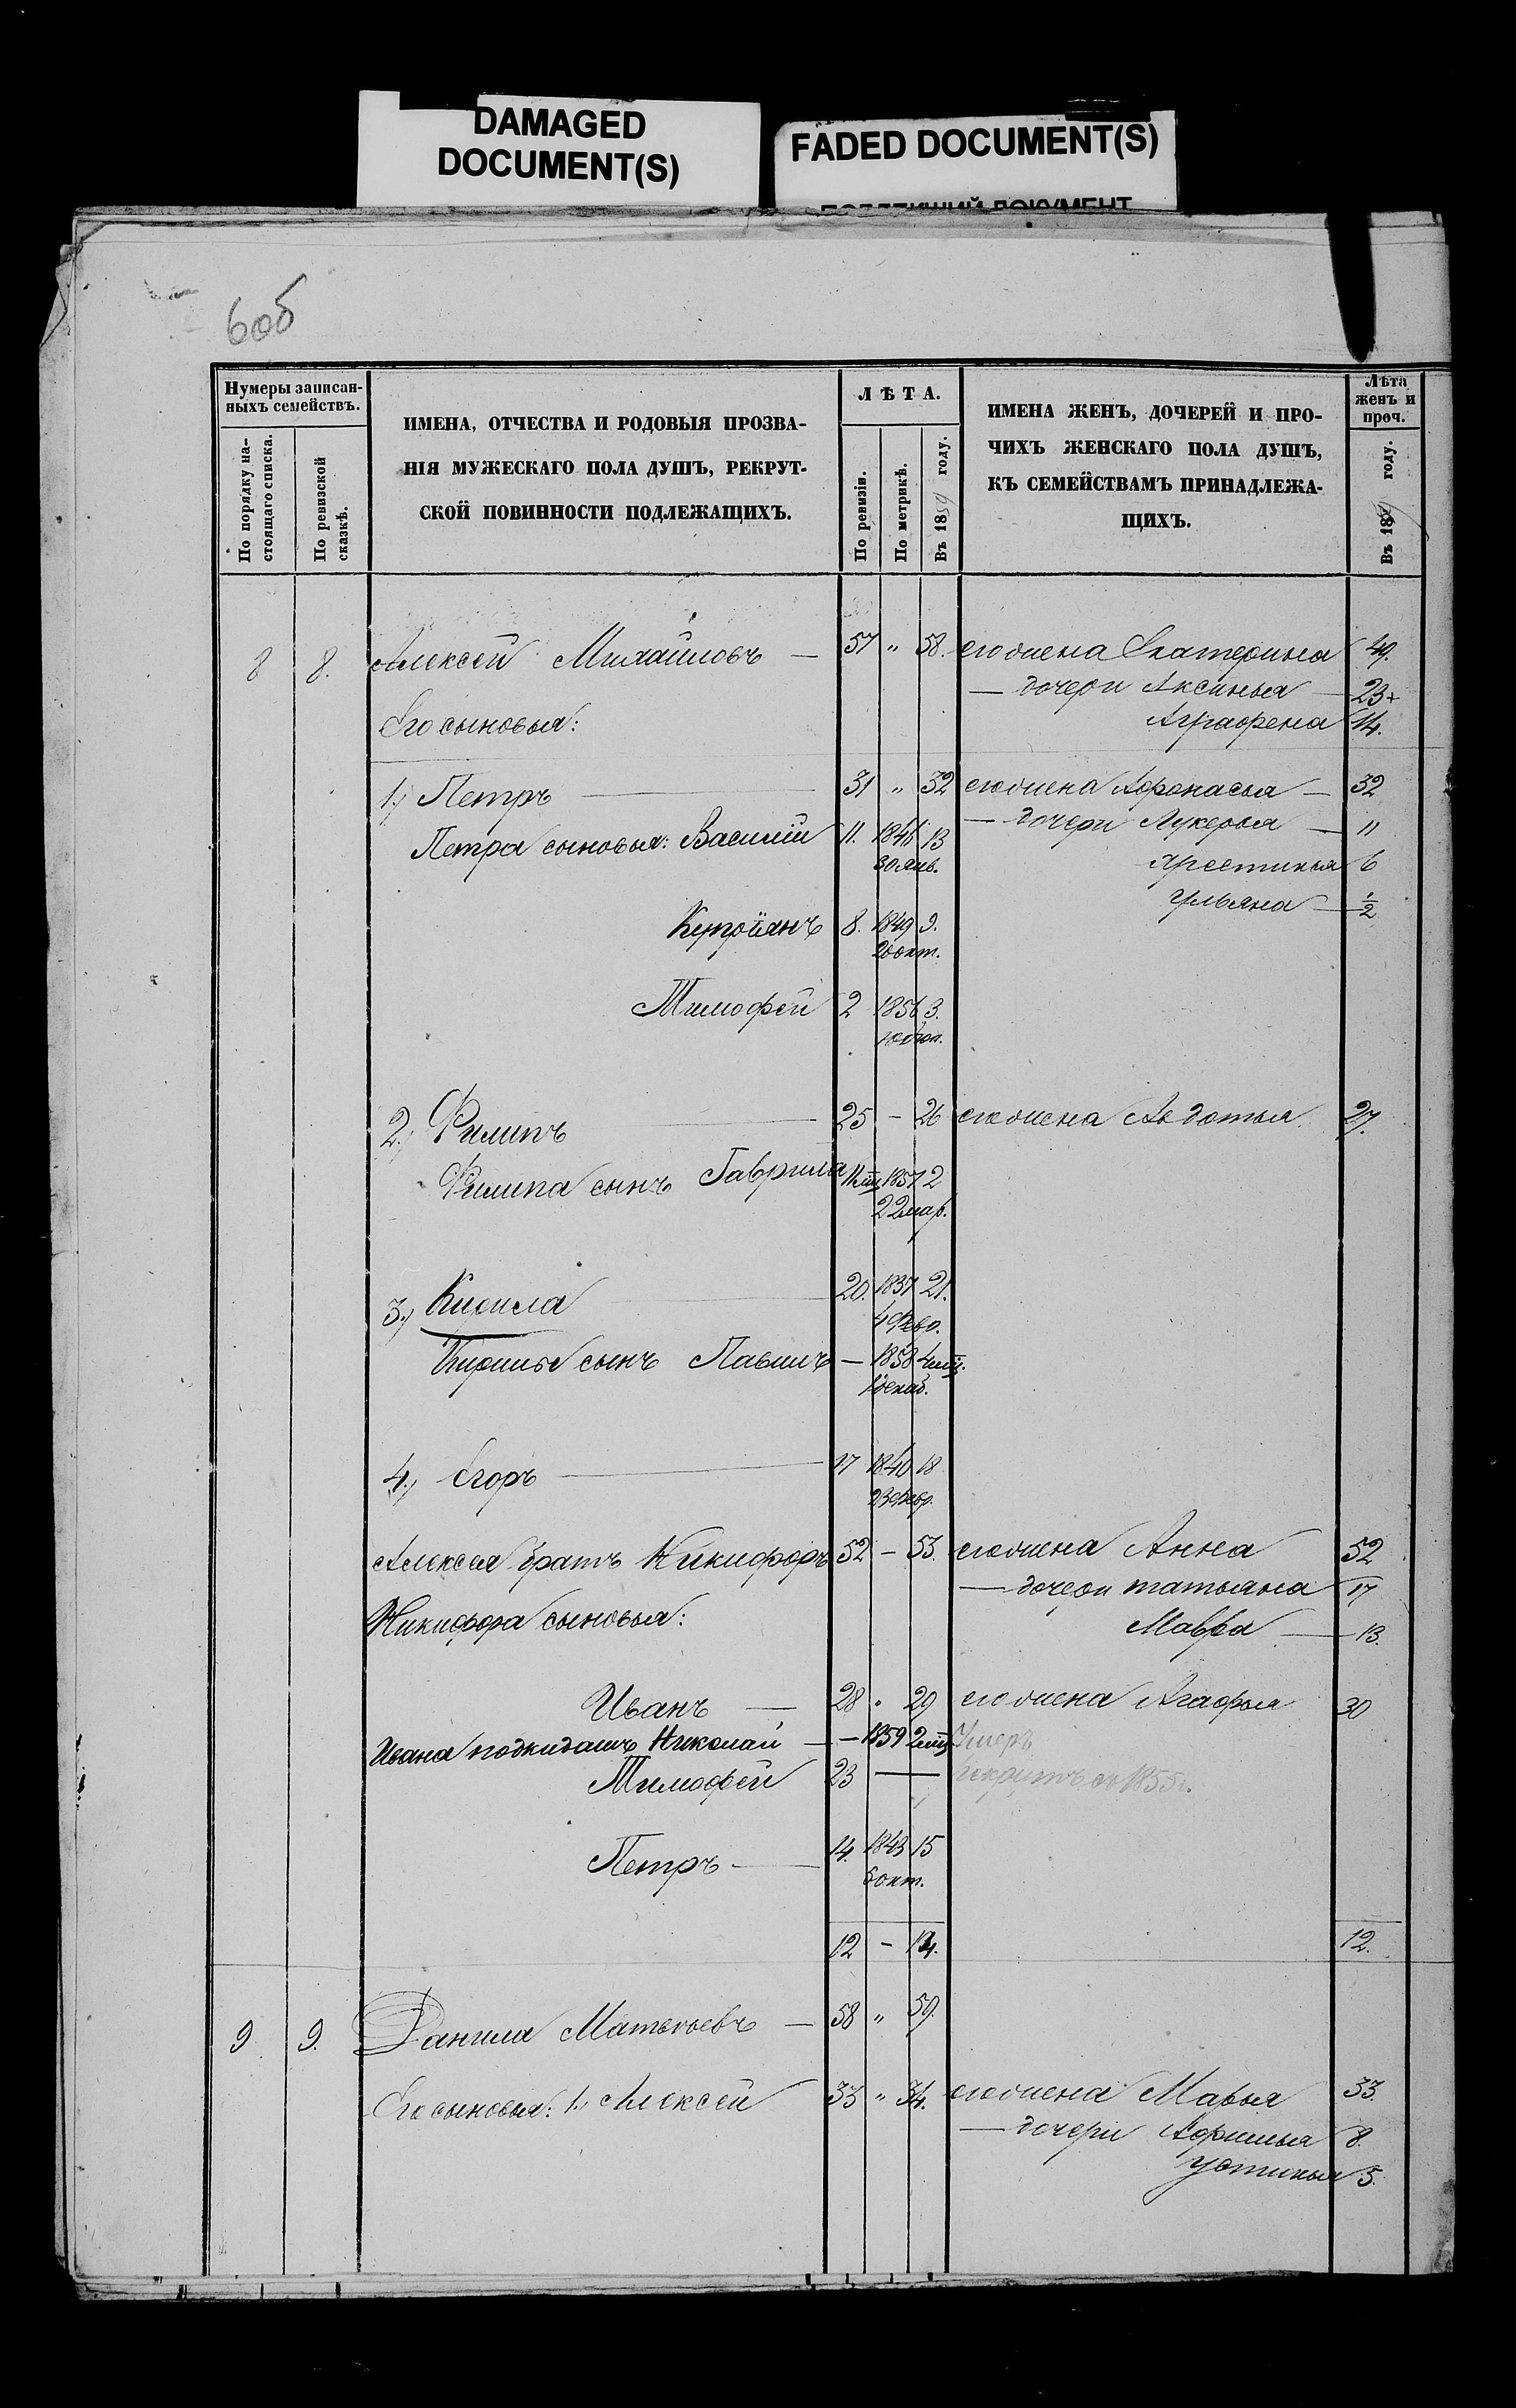 DAMAGED
DOCUMENT(S)
FADED DOCUMENT(S)
6об
Нумеры записан-
ныхъ семействъ.
По порядку на-
стоящаго списка.
По ревизской
сказкѣ.
ИМЕНА, ОТЧЕСТВА И РОДОВЫЯ ПРОЗВА-
НІЯ МУЖЕСКАГО ПОЛА ДУШЪ, РЕКРУТ-
СКОЙ ПОВИННОСТИ ПОДЛЕЖАЩИХЪ.
ЛѢТА.
По ревизіи.
По метрикѣ.
Въ 1859 году.
ИМЕНА ЖЕНЪ, ДОЧЕРЕЙ И ПРО-
ЧИХЪ ЖЕНСКАГО ПОЛА ДУШЪ,
КЪ СЕМЕЙСТВАМЪ ПРИНАДЛЕЖА-
ЩИХЪ.
Лѣта
женъ и
проч.
Въ 1859 году.
8 8. Алексей Михайловъ — 57 " 58. его жена Екатерина 49.
— дочери Аксинья — 23+
Его сыновья: Аграфена 14.
1.) Петръ — 31 " 32 его жена Афонасья — 32
Петра сыновья: Василій 11. 1846 13 — дочери Лукерья — 11
30 янв. 6
Ульяна — ½
Купріянъ 8. 1849 9.
окт.
Тимофей 2 1856 3.
2.) Филипъ — 25 — 26 его жена Авдотья 27.
Филипа сынъ Гаврила 1857 2
22 мар.
3.) Кирила — 20. 1837 21.
4 Февр.
Кирилы сынъ Павилъ — 1858 4 мц.
декаб.
4.) Егоръ — 17 1840 18
23 Февр.
Алексея братъ Никифоръ 52 — 53. его жена Анна 52
— дочери татьяна 17
Никифора сыновья: Мавра — 13.
Иванъ — 28 " 29 его жена Агафья 30
Ивана подкидышъ Николай — — 1859 2 мц Умеръ
Тимофей 23 — рекрутъ съ 1855г.
Петръ — 14. 1843 15
6 окт.
12 — 14. 12.
9 9. Данила Матвѣевъ — 58 " 59.
Его сыновья: 1.) Алексей 33 " 34. его жена Марья 33.
— дочери 8.
Устинья 5.